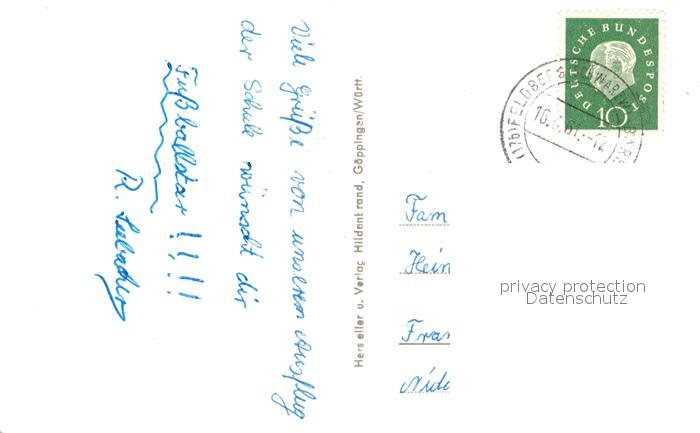 Viele Grüße von unserem Ausflug
der Schule wünscht dir
Fußballstar !!!!
R.
Hersteller u. Verlag Hildenbrand, Göppingen/Württ.
DEUTSCHE BUNDESPOST
10
(17b) FELDBERG
16.6.61.-12
Fam
Hein
Fra
Nide
privacy protection
Datenschutz